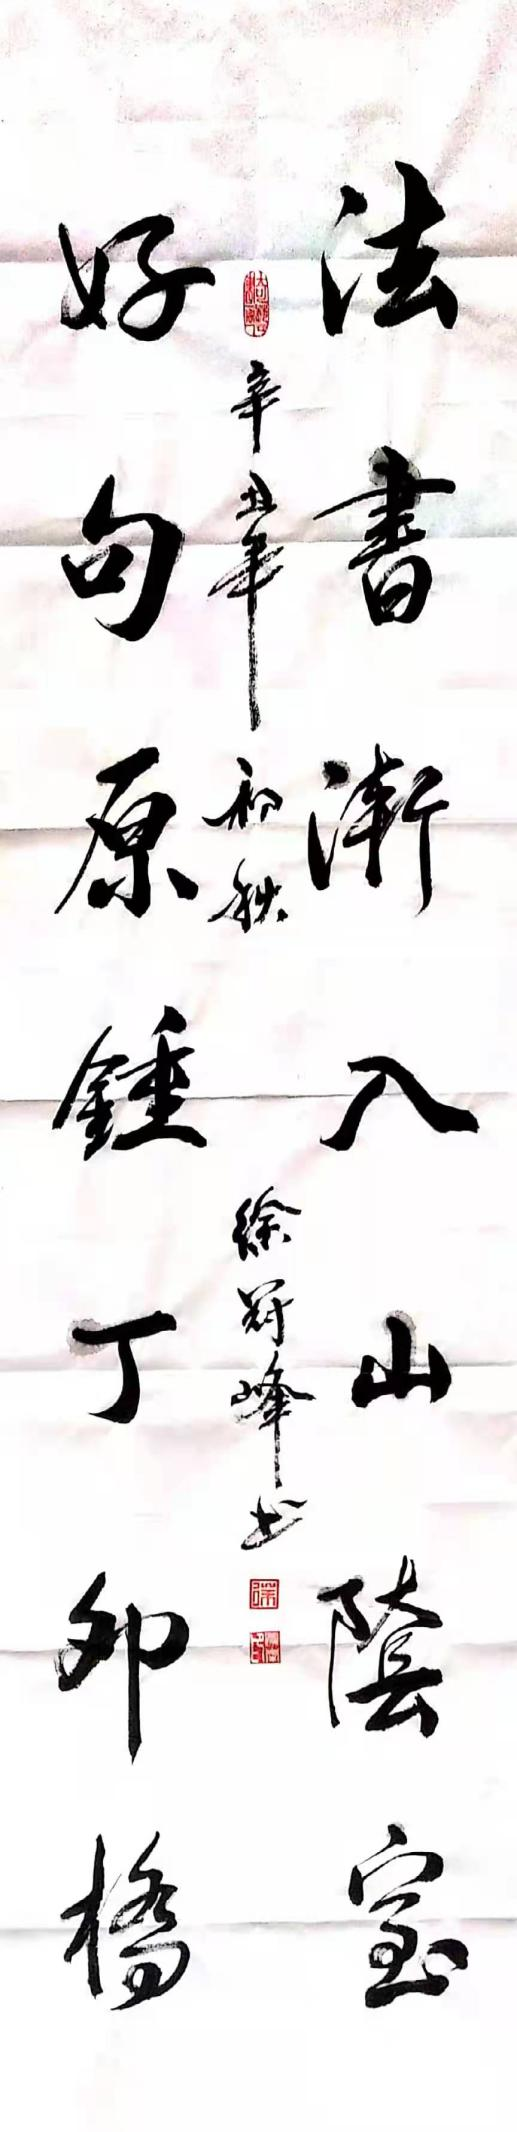 法書漸入山陰室
好句原鍾丁卯橋
辛丑年初秋徐冠峰书